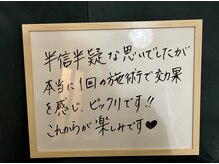 半信半疑な思いでしたが
本当に1回の施術で効果
を感じ、ビックリです!!
これからが楽しみです♥